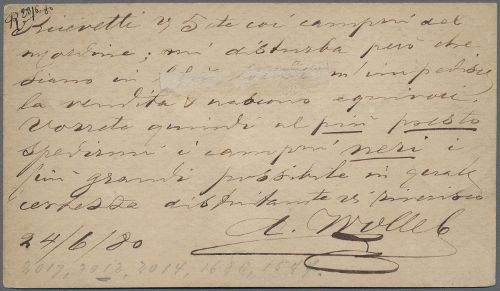 R 28/6. 80
Ricevetti V/ 5 ct e coi campioni del
mordine; mi disturba però che
siano in
m'impedisce
la vendita & nascono equivoci.
Vorrete quindi al più presto
spedirmi i campioni neri i
più grandi possibile in
distintamente Vi riverisco
A. Wolleb
24/6/80
2017, 2012, 2014, 1680, 1547.